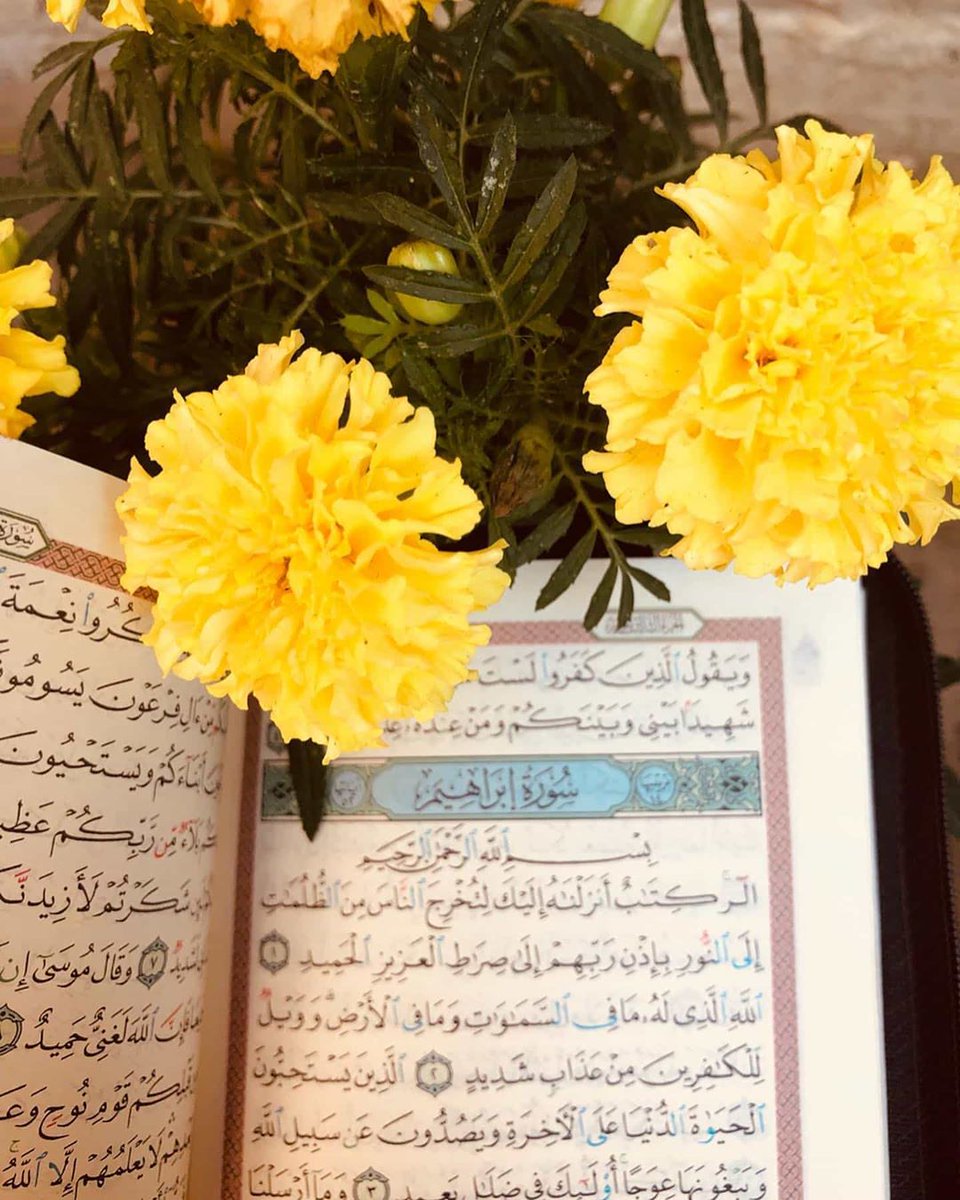 وَيَقُولُ ٱلَّذِينَ كَفَرُوا۟ لَسْتَ
شَهِيدًۢا بَيْنِى وَبَيْنَكُمْ وَمَنْ عِندَهُۥ
سُورَةُ إِبْرَاهِيمَ
بِسْمِ ٱللَّهِ ٱلرَّحْمَٰنِ ٱلرَّحِيمِ
الٓر كِتَٰبٌ أَنزَلْنَٰهُ إِلَيْكَ لِتُخْرِجَ ٱلنَّاسَ مِنَ ٱلظُّلُمَٰتِ
إِلَى ٱلنُّورِ بِإِذْنِ رَبِّهِمْ إِلَىٰ صِرَٰطِ ٱلْعَزِيزِ ٱلْحَمِيدِ ١
ٱللَّهِ ٱلَّذِى لَهُۥ مَا فِى ٱلسَّمَٰوَٰتِ وَمَا فِى ٱلْأَرْضِ وَوَيْلٌ
لِّلْكَٰفِرِينَ مِنْ عَذَابٍ شَدِيدٍ ٢ ٱلَّذِينَ يَسْتَحِبُّونَ
ٱلْحَيَوٰةَ ٱلدُّنْيَا عَلَى ٱلْءَاخِرَةِ وَيَصُدُّونَ عَن سَبِيلِ ٱللَّهِ
وَيَبْغُونَهَا عِوَجًا أُو۟لَٰٓئِكَ فِى ضَلَٰلٍۭ بَعِيدٍ ٣ وَمَآ أَرْسَلْنَا
سُورَةُ
نِعْمَةَ
ءَالِ فِرْعَوْنَ يَسُومُونَ
وَيَسْتَحْيُونَ
مِّن رَّبِّكُمْ
شَكَرْتُمْ لَأَزِيدَنَّ
٧ وَقَالَ مُوسَىٰٓ إِن
ٱللَّهَ لَغَنِىٌّ حَمِيدٌ
قَوْمِ نُوحٍ
لَا يَعْلَمُهُمْ إِلَّا ٱللَّهُ